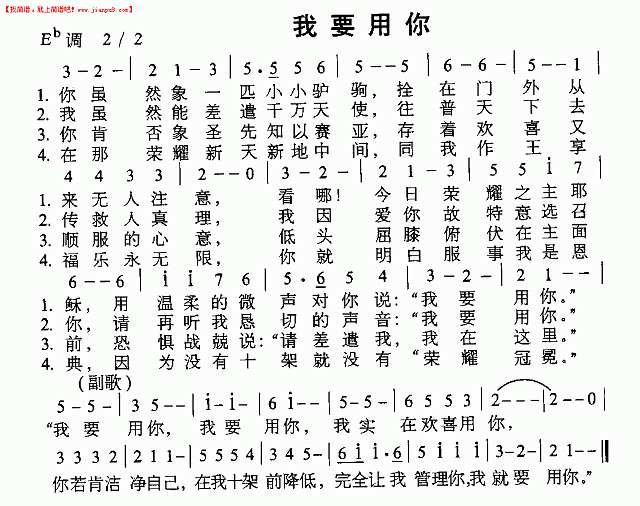 【找简谱，就上简谱吧！】
www.jianpu8.cn
我要用你
E♭调 2/2
3-2- | 2 1-3 | 5·5 5 6 | 5--3 | 3-2- | 5--1 |
1. 你虽 然象一 匹小小驴 驹，拴 在门 外从
2. 我虽 然能差 遣千万天 使，往 普天 下去
3. 你肯 否象圣 先知以赛 亚，存 着欢 喜又
4. 在那 荣耀新 天新地中 间，同 我作 王享
4 4 3 3 | 2--0 | 3--2 | 2-1-3 | 5 5 i 7 |
1. 来无人注 意， 看哪！ 今日荣 耀之主耶
2. 传救人真 理， 我因 爱你故 特意选召
3. 顺服的心 意， 低头 屈膝俯 伏在主面
4. 福乐永无 限， 你就 明白服 事我是恩
6--6 | i i 7 6 | 5·6 5 4 | 3-2- | 2 1-- |
1. 稣，用 温柔的微 声对你说：“我要 用你。”
2. 你，请 再听我恳 切的声音：“我要 用你。”
3. 前，恐 惧战兢说：“请差遣我，我在 这里。”
4. 典，因 为没有十 架就没有 “荣耀 冠冕。”
(副歌)
5-5- | 3 5-- | i-i- | 6 i-- | 5-5- | 6 5 5 3 | 2--- | 2--0 |
“我要 用你，我要 用你，我实 在欢喜用 你，
3 3 3 2 | 2 1 1- | 5 5 5 3 | 5 6 6- | 6 i i·6 | 5 i i i | 3-2- | 2 1-- ‖
你若肯洁 净自己，在我十架 前降低，完全让我 管理你，我就要 用你。”